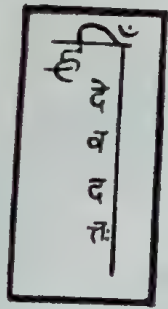 ह्रीँ
देवदत्तः